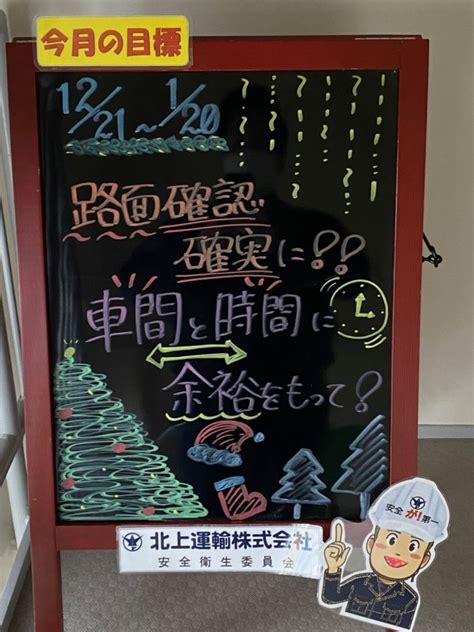 今月の目標
12/21～1/20
路面確認
確実に!!
車間と時間に
余裕をもって!
北上運輸株式会社
安全衛生委員会
安全が第一